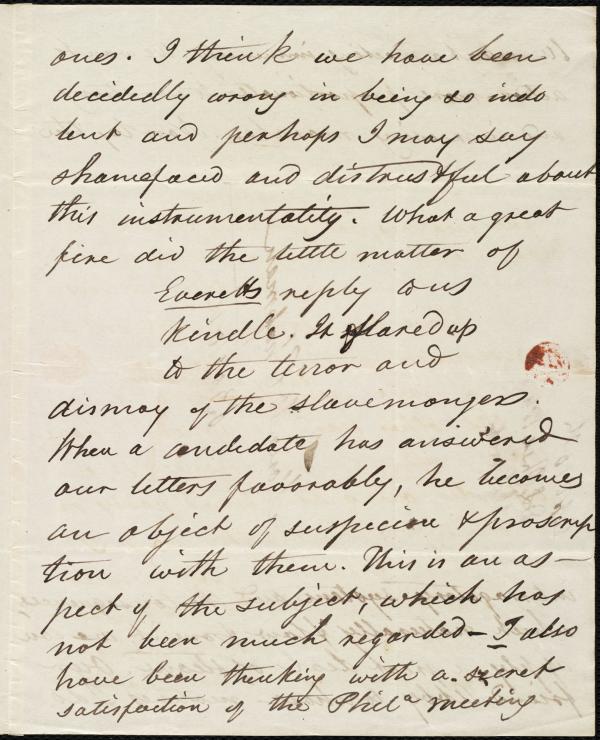 ones. I think we have been
decidedly wrong in being so indo
lent and perhaps I may say
shamefaced and distrustful about
this instrumentality. What a great
fire did the little matter of
Everetts reply to us
kindle. It flared up
to the terror and
dismay of the slavemongers.
When a candidate has answered
our letters favorably, he becomes
an object of suspicion & proscrip
tion with them. This is an as-
pect of the subject, which has
not been much regarded - I also
have been thinking with a secret
satisfaction of the Phila meeting